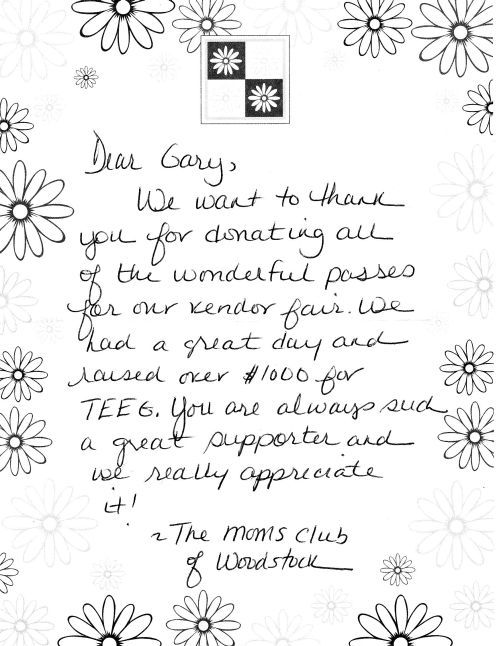 Dear Gary,
We want to thank
you for donating all
of the wonderful passes
for our vendor fair. We
had a great day and
raised over $1000 for
TEEG. You are always such
a great supporter and
we really appreciate
it!
~ The Moms Club
of Woodstock